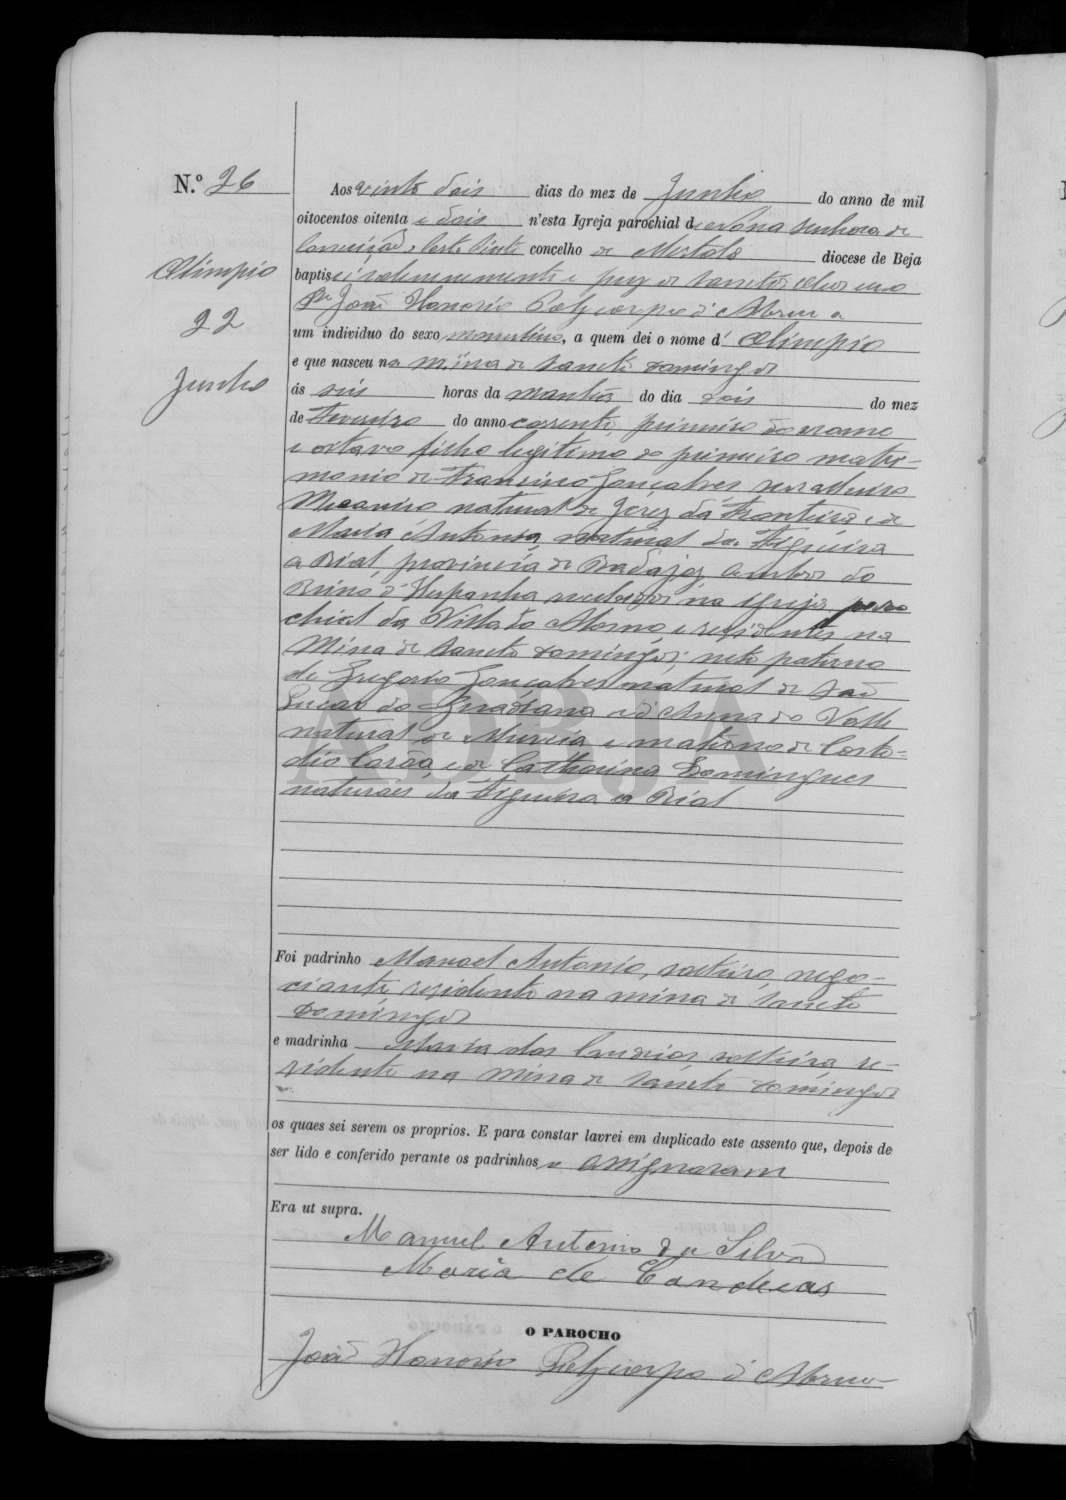 N.º 26
Aos vinte dois dias do mez de Junho do anno de mil
oitocentos oitenta e dois n'esta Igreja parochial de Nossa Senhora da
Conceição, Corte Pinto concelho de Mertola diocese de Beja
Olimpio
22
Junho
baptisei solemnemente e puz os sanctos oleos eu o
Pr João Honorio Polycarpo d'Abreu a
um individuo do sexo masculino, a quem dei o nome d' Olimpio
e que nasceu na mina de Sancto Domingos
ás seis horas da manhã do dia dois do mez
de Fevereiro do anno corrente, primeiro do nome
e oitavo filho legitimo do primeiro matri-
monio de Francisco Gonçalves serralheiro
Mecanico natural de Jerez da Fronteira e de
Maria Antonia natural da Figueira
a Rial provincia de Badajoz ambos do
Reino d'Hespanha recebidos na Igreja paro
chial da Villa do Alosno, e residentes na
Mina de Sancto Domingos; neto paterno
de Gregorio Gonçalves natural de São
Lucar do Guadiana e d'Anna do Valle
natural de Murcia e materno de Costo-
dio Carão e de Catharina Domingues
naturaes da Figueira a Rial
ADBJA
Foi padrinho Manoel Antonio, solteiro, nego-
ciante residente na mina de Sancto
Domingos
e madrinha Maria das Candeias solteira re-
sidente na Mina de Sancto Domingos
os quaes sei serem os proprios. E para constar lavrei em duplicado este assento que, depois de
ser lido e conferido perante os padrinhos assignaram
Era ut supra.
Manuel Antonio da Silva
Maria de Candeias
O PAROCHO
João Honorio Polycarpo d'Abreu